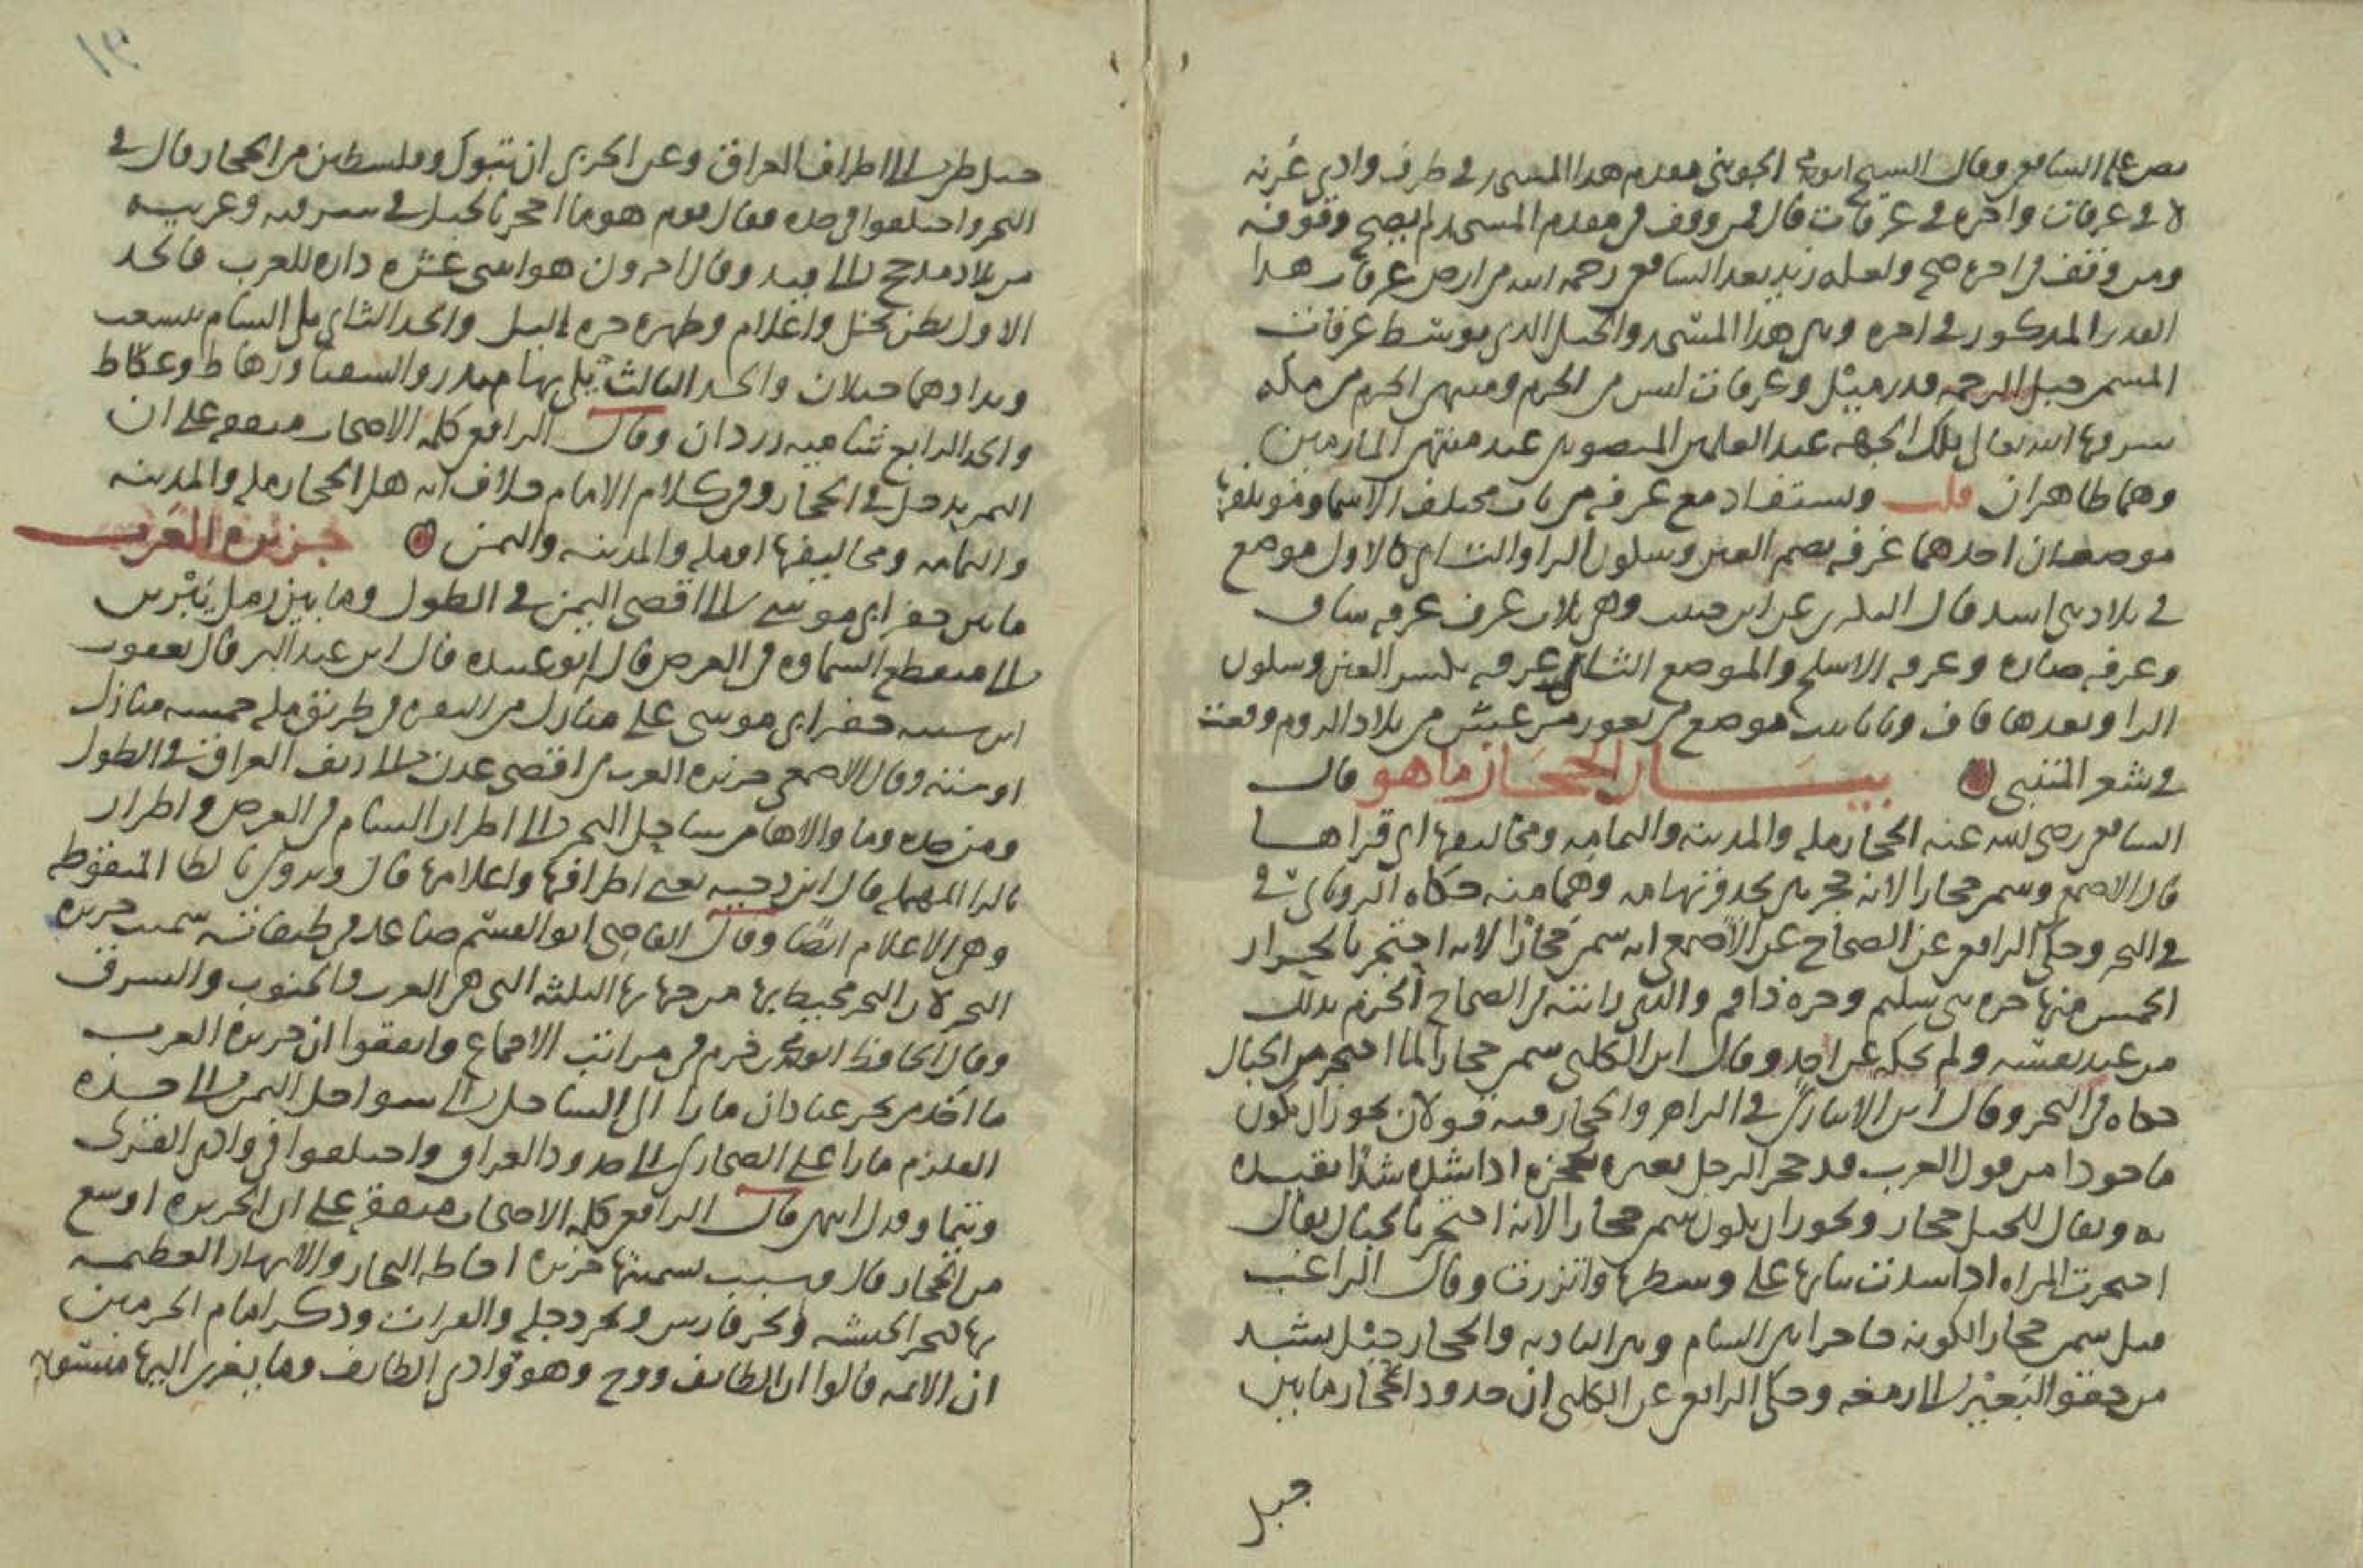 نص عليه الشافعي وقال الشيخ ابو محمد الجويني مقدم هذا المسجد في طرف وادي عرنة
لا في عرفات واخره في عرفات قال فمن وقف في مقدم المسجد لم يصح وقوفه
ومن وقف في اخره صح ولعله زيد بعد الشافعي رحمه الله من ارض عرفات هذا
القدر المذكور في اخره وبين هذا المسجد والجبل الذي بوسط عرفات
المسمى جبل الرحمة قدر ميل وعرفات ليس من الحرم ومنتهى الحرم من مكة
شرفها الله تعالى تلك الجهة عند العلمين المنصوبين عند منتهى المازمين
وهما ظاهران قلت ويستفاد مع عرفة من باب مختلف الاسما ومؤتلفها
موضعان احدهما غرفة بضم الغين وسكون الرا والثاني كالاول موضع
في بلاد بني اسد قال البكري عن ابن حبيب وهي ثلاث عرف عرفة ساق
وعرفة صارة وعرفة الاملح والموضع الثاني عرقة بكسر العين وسكون
الرا وبعدها قاف وتا تانيث موضع من ثغور مرعش من بلاد الروم وقعت
في شعر المتنبي بيان الحجاز ما هو قال
الشافعي رضي الله عنه الحجاز مكة والمدينة واليمامة ومخاليفها اي قراها
قال الاصمعي وسمي حجازا لانه حجز بين نجد وتهامة وهما منه حكاه الروياني في
في البحر وحكى الرافعي عن الصحاح عن الاصمعي انه سمي حجازا لانه احتجز بالحرار
الخمس منها حرة بني سليم وحرة واقم والذي رايته في الصحاح الجزم بذلك
من عند نفسه ولم يحكه عن احد وقال ابن الكلبي سمي حجازا لما احتجز من الجبال
حكاه في البحر وقال ابن الانباري في الزاهر والحجاز فيه قولان يجوز ان يكون
ماخوذا من قول العرب قد حجز الرجل بعيره يحجزه اذا شده شدا يقيده
به ويقال للحبل حجاز ويجوز ان يكون سمي حجازا لانه احتجز بالجبال يقال
احتجزت المراة اذا شدت ثيابها على وسطها واتزرت وقال الراغب
قيل سمي حجازا لكونه حاجزا بين الشام وبين البادية والحجاز حبل يشد
من حقو البعير الى رسغه وحكى الرافعي عن الكلبي ان حدود الحجاز ما بين
جبل
جبلي طي الى اطراف العراق وعن الحربي ان تبوك وفلسطين من الحجاز قال في
البحر واختلفوا في حده فقال قوم هو ما احتجز بالجبل في شرقيه وغربيه
من بلاد مذحج الى فيد وقال اخرون هو اثني عشرة دارة للعرب فالحد
الاول بطن نخل واعلام وظهره حرة ليلى والحد الثاني يلي الشام
جبلان والحد الثالث يلي تهامة بدر والسقيا ورهاط وعكاظ
والحد الرابع شامية وردان وقال الرافعي كلمة الاصحاب متفقة على ان
اليمن يدخل في الحجاز وفي كلام الامام خلاف انه هل الحجاز مكة والمدينة
واليمامة ومخاليفها او مكة والمدينة واليمن جزيرة العرب
ما بين حفر ابي موسى الى اقصى اليمن في الطول وما بين رمل يبرين
الى منقطع السماوة في العرض قال ابو عبيدة قال ابن عبد البر قال يعقوب
ابن شيبة حفر ابي موسى على منازل من البصرة في طريق مكة خمسة منازل
او ستة وقال الاصمعي جزيرة العرب من اقصى عدن الى ريف العراق في الطول
ومن جدة وما والاها من ساحل البحر الى اطرار الشام في العرض واطرار
بالرا المهملة قال ابن دحية يعني اطرافها واعلامها قال ويروى بالظا المنقوطة
وهي الاعلام ايضا وقال القاضي ابو القسم صاعد في طبقاته سميت جزيرة
البحر لان البحر محيط بها من جهاتها الثلثة التي هي الغرب والجنوب والشرق
وقال الحافظ ابو محمد بن حزم في مراتب الاجماع واتفقوا ان جزيرة العرب
ما اخذ من بحر عبادان مارا الى الساحل الى سواحل اليمن الى جدة
القلزم مارا على الصحاري الى حدود العراق واختلفوا في وادي القرى
وتيما وفدك انتهى قال الرافعي كلمة الاصحاب متفقة على ان الجزيرة اوسع
من الحجاز قال وسبب تسميتها جزيرة احاطة البحار والانهار العظيمة
بها كبحر الحبشة وبحر فارس وبحر دجلة والفرات وذكر امام الحرمين
ان الائمة قالوا ان الطائف ووج وهو وادي الطائف وما يعزى اليها منسوبة